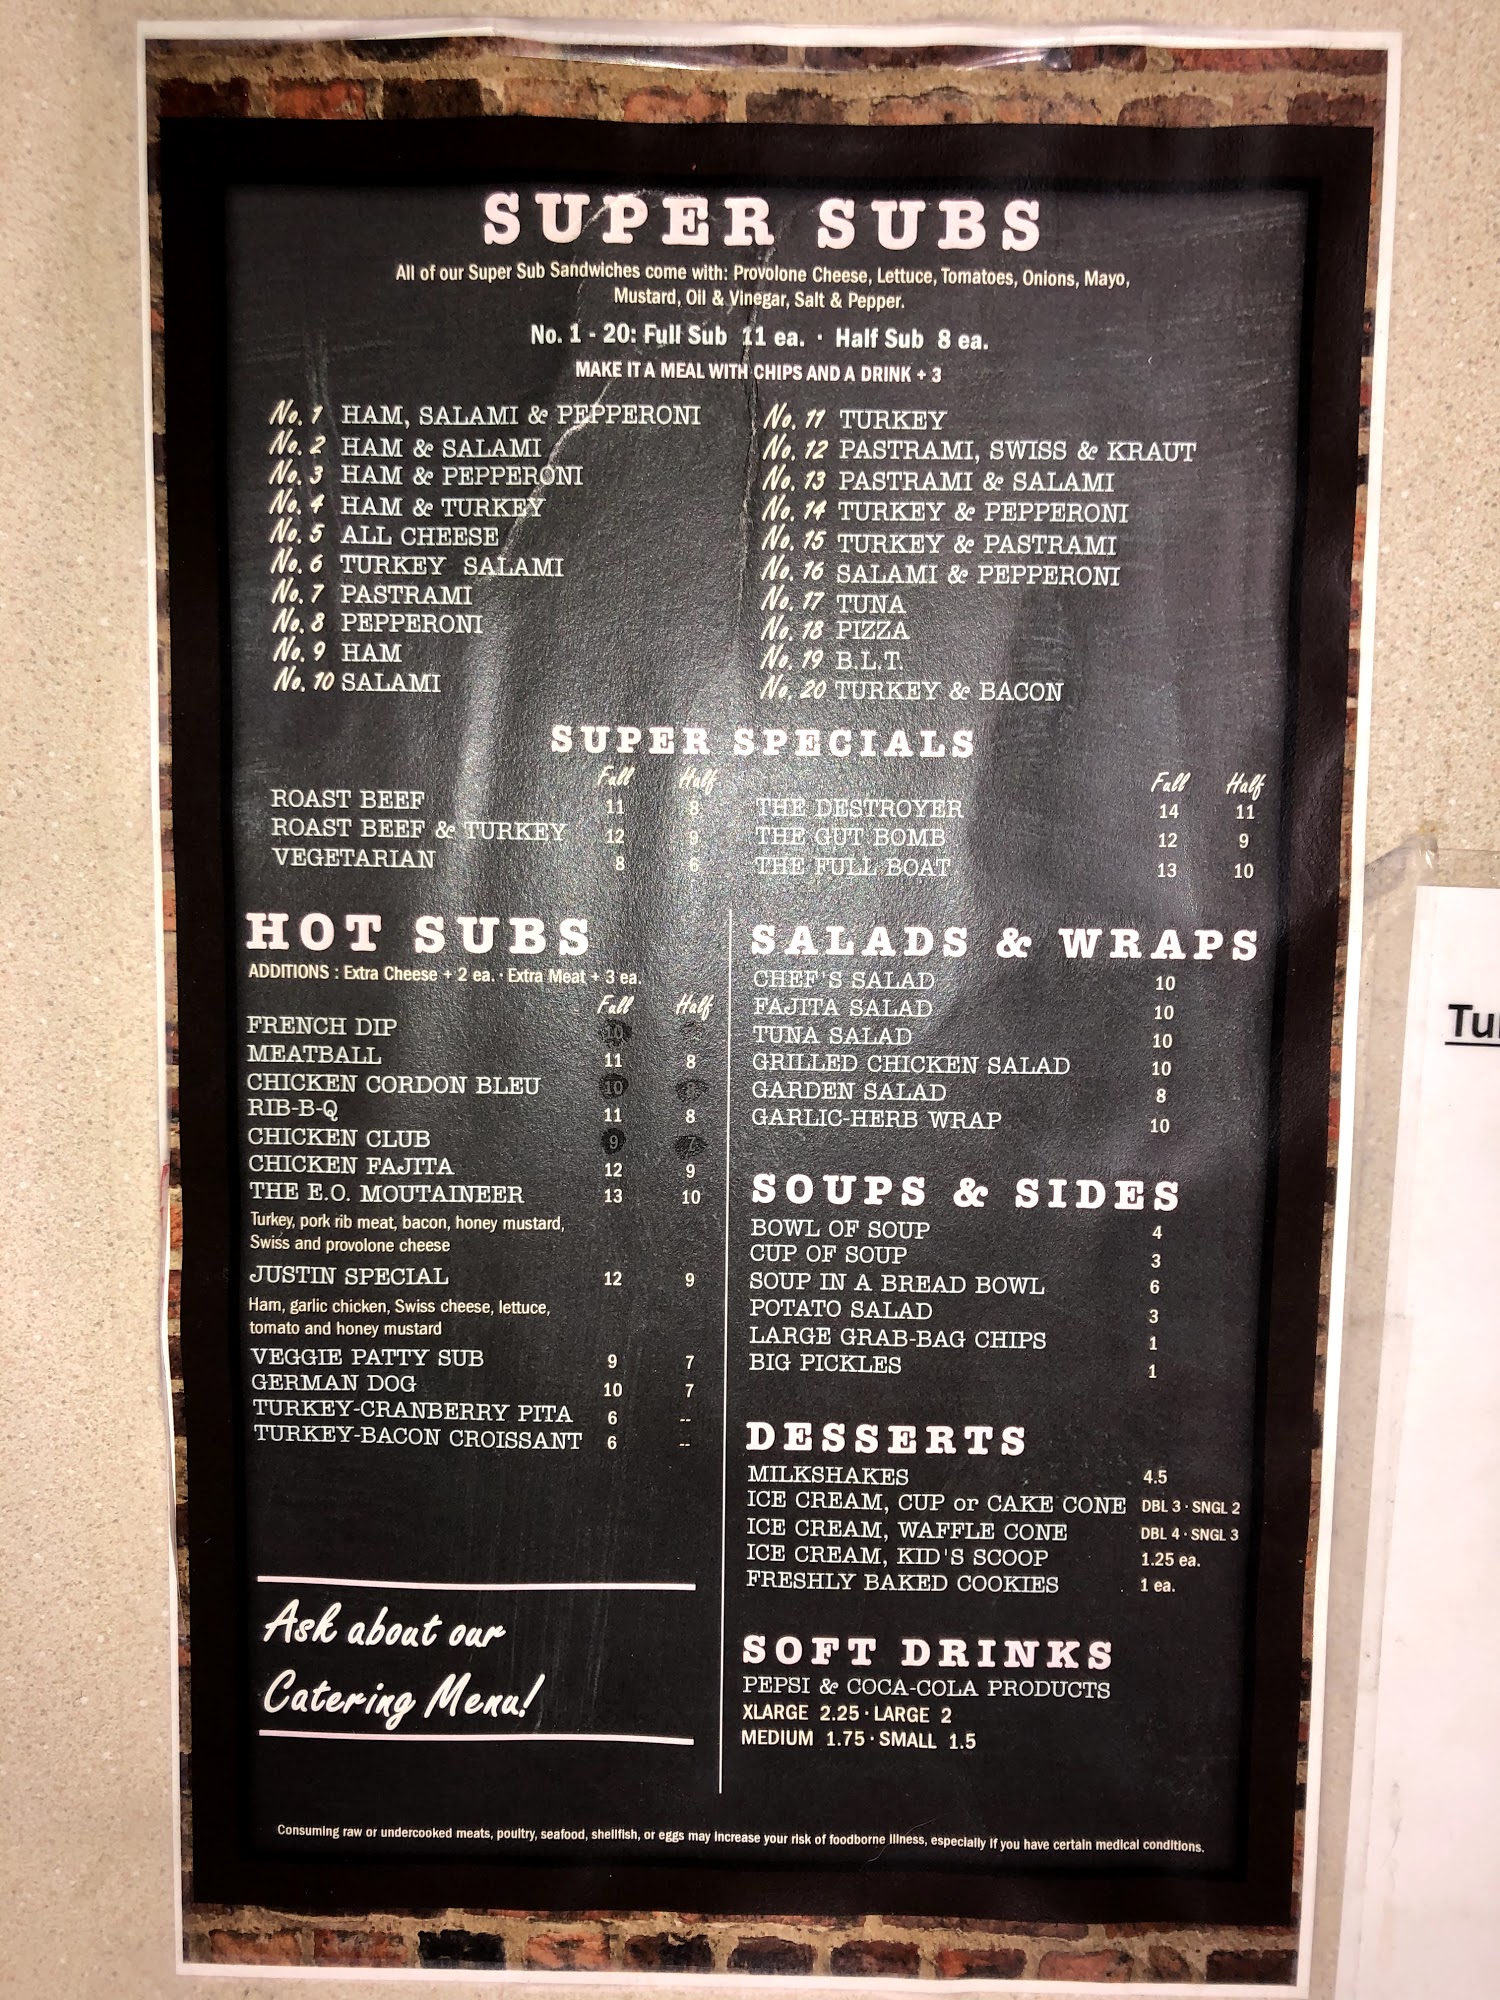 SUPER SUBS
All of our Super Sub Sandwiches come with: Provolone Cheese, Lettuce, Tomatoes, Onions, Mayo,
Mustard, Oil & Vinegar, Salt & Pepper.
No. 1 - 20: Full Sub 11 ea. · Half Sub 8 ea.
MAKE IT A MEAL WITH CHIPS AND A DRINK + 3
No. 1 HAM, SALAMI & PEPPERONI
No. 2 HAM & SALAMI
No. 3 HAM & PEPPERONI
No. 4 HAM & TURKEY
No. 5 ALL CHEESE
No. 6 TURKEY SALAMI
No. 7 PASTRAMI
No. 8 PEPPERONI
No. 9 HAM
No. 10 SALAMI
No. 11 TURKEY
No. 12 PASTRAMI, SWISS & KRAUT
No. 13 PASTRAMI & SALAMI
No. 14 TURKEY & PEPPERONI
No. 15 TURKEY & PASTRAMI
No. 16 SALAMI & PEPPERONI
No. 17 TUNA
No. 18 PIZZA
No. 19 B.L.T.
No. 20 TURKEY & BACON
SUPER SPECIALS
Full Half
ROAST BEEF 11 8
ROAST BEEF & TURKEY 12 9
VEGETARIAN 8 6
Full Half
THE DESTROYER 14 11
THE GUT BOMB 12 9
THE FULL BOAT 13 10
HOT SUBS
ADDITIONS : Extra Cheese + 2 ea. · Extra Meat + 3 ea.
Full Half
FRENCH DIP 10
MEATBALL 11 8
CHICKEN CORDON BLEU 10 8
RIB-B-Q 11 8
CHICKEN CLUB 9 7
CHICKEN FAJITA 12 9
THE E.O. MOUTAINEER 13 10
Turkey, pork rib meat, bacon, honey mustard,
Swiss and provolone cheese
JUSTIN SPECIAL 12 9
Ham, garlic chicken, Swiss cheese, lettuce,
tomato and honey mustard
VEGGIE PATTY SUB 9 7
GERMAN DOG 10 7
TURKEY-CRANBERRY PITA 6 --
TURKEY-BACON CROISSANT 6 --
Ask about our
Catering Menu!
SALADS & WRAPS
CHEF'S SALAD 10
FAJITA SALAD 10
TUNA SALAD 10
GRILLED CHICKEN SALAD 10
GARDEN SALAD 8
GARLIC-HERB WRAP 10
SOUPS & SIDES
BOWL OF SOUP 4
CUP OF SOUP 3
SOUP IN A BREAD BOWL 6
POTATO SALAD 3
LARGE GRAB-BAG CHIPS 1
BIG PICKLES 1
DESSERTS
MILKSHAKES 4.5
ICE CREAM, CUP or CAKE CONE DBL 3 · SNGL 2
ICE CREAM, WAFFLE CONE DBL 4 · SNGL 3
ICE CREAM, KID'S SCOOP 1.25 ea.
FRESHLY BAKED COOKIES 1 ea.
SOFT DRINKS
PEPSI & COCA-COLA PRODUCTS
XLARGE 2.25 · LARGE 2
MEDIUM 1.75 · SMALL 1.5
Consuming raw or undercooked meats, poultry, seafood, shellfish, or eggs may increase your risk of foodborne illness, especially if you have certain medical conditions.